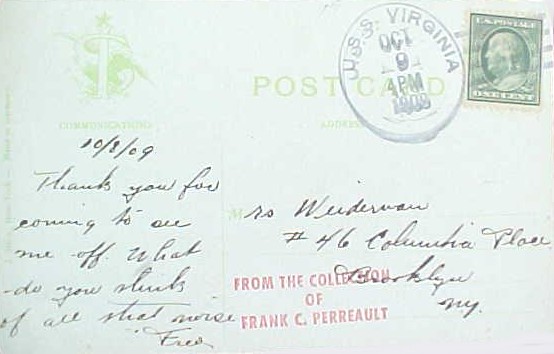 POST CARD
COMMUNICATIONS
ADDRESS
U.S.S. VIRGINIA
OCT
9
4PM
1909
U.S. POSTAGE
ONE CENT
10/8/09
Thank you for
coming to see
me off. What
do you think
of all that noise
Fred
Mrs Weiderman
#46 Columbia Place
Brooklyn
NY.
FROM THE COLLECTION
OF
FRANK C. PERREAULT